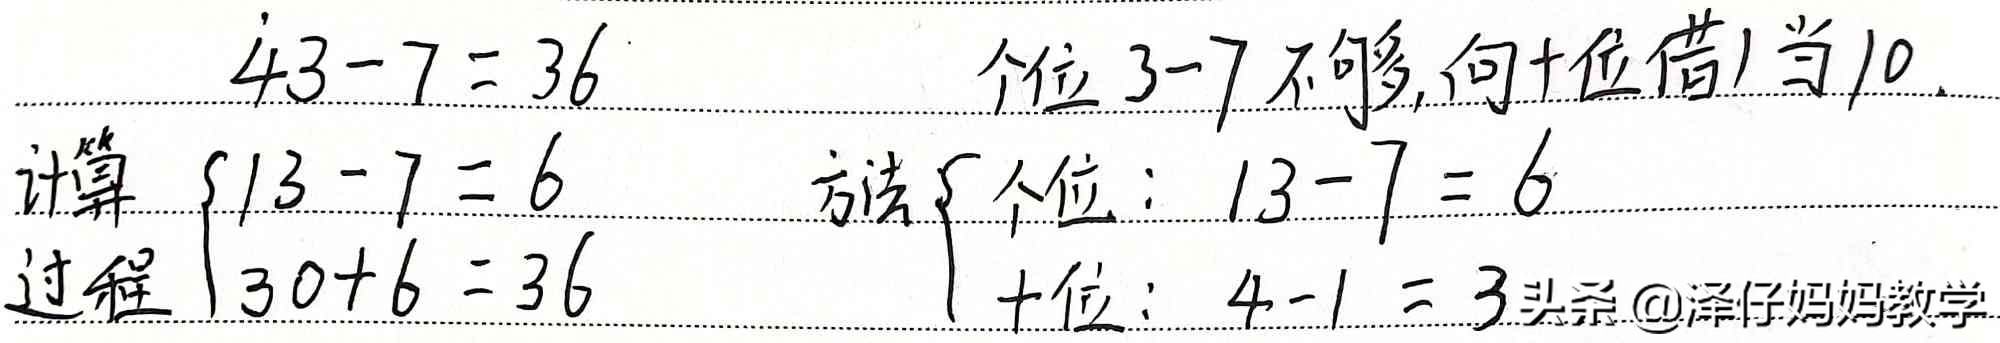 43-7=36 个位3-7不够,向十位借1当10.
计算 13-7=6 方法 个位: 13-7=6
过程 30+6=36 十位: 4-1=3
头条@泽仔妈妈教学